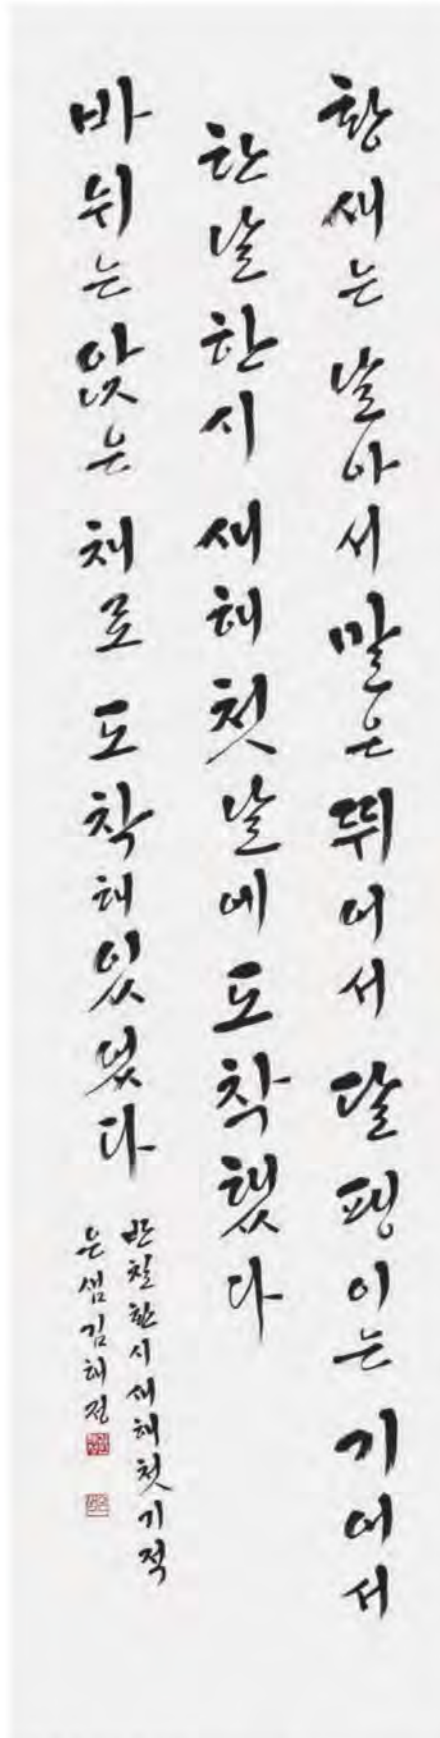 황새는 날아서 말은 뛰어서 달팽이는 기어서
한날한시 새해 첫날에 도착했다
바위는 앉은 채로 도착해 있었다
반칠환 시 새해 첫 기적
은샘 김해정